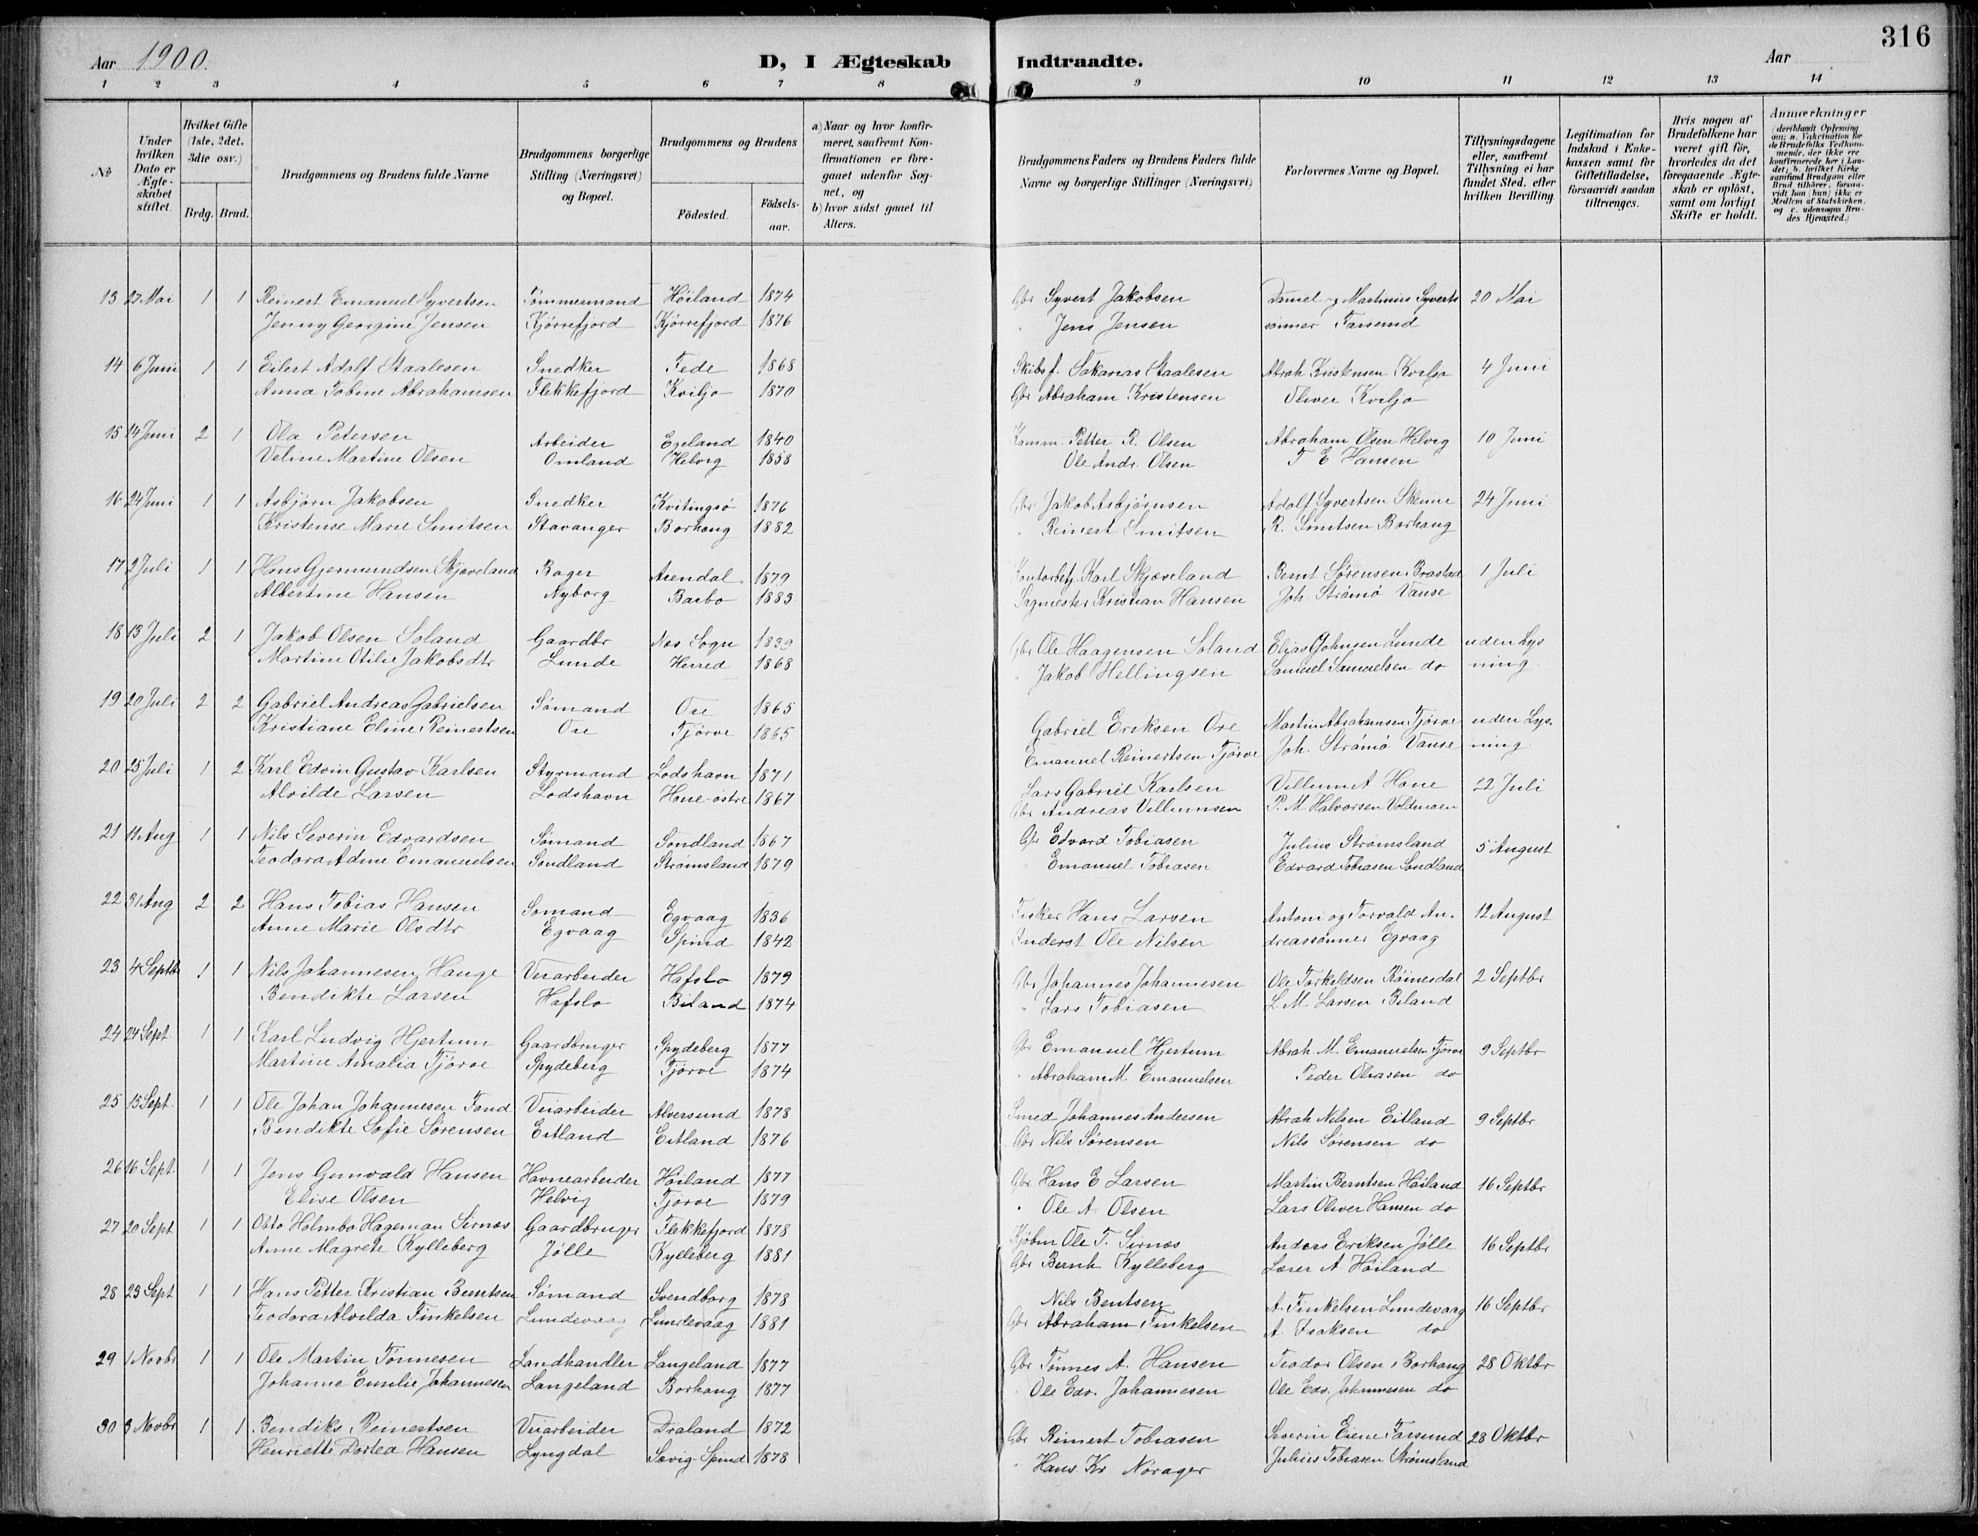 316
Aar 1900. D, I Ægteskab Indtraadte. Aar
1 2 3 4 5 6 7 8 9 10 11 12 13 14
№ Under hvilken Dato er Ægteskabet stiftet. Hvilket Gifte (1ste, 2det, 3die osv.) Brdg. Brud. Brudgommens og Brudens fulde Navne Brudgommens borgerlige Stilling (Næringsvei) og Bopæl. Brudgommens og Brudens Födested. Födselsaar. a) Naar og hvor konfirmeret, saafremt Konfirmationen er foregaaet udenfor Sognet, og b) hvor sidst gaaet til Alters. Brudgommens Faders og Brudens Faders fulde Navne og borgerlige Stillinger (Næringsvei) Forlovernes Navne og Bopæl. Tillysningsdagene eller, saafremt Tillysning ei har fundet Sted, efter hvilken Bevilling. Legitimation for Indskud i Enkekassen samt for Giftetilladelse, forsaavidt saadan tiltrænges. Hvis nogen af Brudefolkene har været gift før, hvorledes da det foregaaende Ægteskab er opløst, samt om lovligt Skifte er holdt. Anmærkninger (deriblandt Oplysning om: a. Vakcination for de Brudefolks Vedkommende, der ikke ere konfirmerede her i Landet; b. hvilket Kirkesamfund Brudgom eller Brud tilhører, forsaavidt han (hun) ikke er Medlem af Statskirken, og c. udensogns Brudes Hjemsted.)
13 27 Mai 1 1 Reinert Emanuel Syvertsen Tømmermand Höiland 1874 Gbr Syvert Jakobsen Daniel og Martinius Syverts 20 Mai
Jenny Georgine Jensen Kjørrefjord Kjørrefjord 1876 " Jens Jensen sønner Farsund
14 6 Juni 1 1 Eilert Adolf Staalesen Snedker Fede 1868 Skibsf. Sakarias Staalesen Abrah Kristensen Kviljo 4 Juni
Anna Tobine Abrahamsen Flekkefjord Kviljo 1870 Gbr Abraham Kristensen Oliver Kviljo
15 14 Juni 2 1 Ola Petersen Arbeider Egeland 1840 Petter R. Olsen Abraham Olsen Helvig 10 Juni
Veline Martine Olsen Omland Helvig 1858 Ole Andr. Olsen T E Hansen
16 24 Juni 1 1 Asbjørn Jakobsen Snedker Kvitingsø 1876 Gbr Jakob Asbjørnsen Adolf Syvertsen Skeime 24 Juni
Kristense Marie Smitsen Stavanger Borhaug 1882 " Reinert Smitsen R. Smitsen Borhaug
17 2 Juli 1 1 Hans Gjermundsen Skjæveland Bager Arendal 1879 Kontorbetj. Karl Skjæveland Bernt Sørensen Brastad 1 Juli
Albertine Hansen Nyborg Barbo 1883 Sagmester Kristian Hansen Joh. Strömö Vanse
18 13 Juli 2 1 Jakob Olsen Soland Gaardbr Nes Sogn 1839 Gbr Ole Haagensen Soland Elias Johnsen Lunde uden Lys
Martine Otilie Jakobsdtr Lunde Herred 1868 " Jakob Hellingsen Samuel Samuelsen do ning
19 20 Juli 2 2 Gabriel Andreas Gabrielsen Sømand Ore 1865 Gabriel Eriksen Ore Martin Abrahamsen Tjørve uden Lys-
Kristiane Eline Reinertsen Ore Tjørve 1865 Emanuel Reinertsen Tjørve Joh. Strömö Vanse ning
20 25 Juli 1 2 Karl Edvin Gustav Karlsen Styrmand Lodshavn 1871 Lars Gabriel Karlsen Villum A. Hone 22 Juli
Alvilde Larsen Lodshavn Hone-østre 1867 Gbr Andreas Villumsen P. M. Halvorsen Voldmoen
21 11 Aug 1 1 Nils Severin Edvardsen Sømand Sondland 1867 Gbr Edvard Tobiasen Julius Strømsland 5 August
Teodora Adine Emanuelsen Sondland Strømsland 1879 Emanuel Tobiasen Edvard Tobiasen Sondland
22 31 Aug 2 2 Hans Tobias Hansen Sømand Egvaag 1836 Fisker Hans Larsen Antoni og Torvald An- 12 August
Anne Marie Olsdtr Egvaag Spind 1842 Inderst Ole Nilsen dreassønner Egvaag
23 4 Septbr 1 1 Nils Johannesen Hauge Veiarbeider Hafslo 1879 Gbr Johannes Johannesen Ole Torkeldsen Röinesdal 2 Septbr
Bendikte Larsen Hafslo Biland 1874 " Lars Tobiasen L. M. Larsen Biland
24 24 Sept. 1 1 Karl Ludvig Hjertum Gaardbruger Spydeberg 1877 Gbr Emanuel Hjertum Abrah. M. Emanuelsen Tjørve 9 Septbr
Martine Amalia Tjørve Spydeberg Tjørve 1874 " Abraham M Emanuelsen Peder Oliasen do
25 15 Sept. 1 1 Ole Johan Johannesen Tond Veiarbeider Alversund 1878 Smed Johannes Andersen Abrah Nilsen Eitland 9 Septbr
Bendikte Sofie Sørensen Eitland Eitland 1876 Gbr Nils Sørensen Nils Sørensen do
26 16 Sept 1 1 Jens Gunvald Hansen Havnearbeider Höiland 1877 Gbr Hans E Larsen Martin Berntsen Höiland 16 Septbr
Elise Olsen Helvig Tjørve 1879 " Ole A. Olsen Lars Oliver Hansen do
27 20 Sept 1 1 Otto Holmbo Hageman Sirnæs Gaardbruger Flekkefjord 1878 Kjøbm Ole T. Sirnæs Anders Eriksen Jölle 16 Septbr
Anne Magrete Kylleberg Jölle Kylleberg 1881 Gbr Bernh Kylleberg Lærer A Höiland
28 23 Sept 1 1 Hans Petter Kristian Bentsen Sømand Svendborg 1878 Nils Bentsen A. Tinkelsen Lundevaag 16 Septbr
Teodora Alvilda Tinkelsen Lundevaag Lundevaag 1881 Gbr Abraham Tinkelsen A. Isaksen do
29 1 Novbr 1 1 Ole Martin Tønnesen Landhandler Langeland 1877 Gbr Tønnes A. Hansen Teodor Olsen Borhaug 28 Oktbr
Johanne Emilie Johannesen Langeland Borhaug 1877 " Ole Edv. Johannesen Ole Edv. Johannesen do
30 3 Novbr 1 1 Bendiks Reinertsen Veiarbeider Draland 1872 Gbr Reinert Tobiasen Severin Eiene Farsund 28 Oktbr
Henriette Dortea Hansen Lyngdal Sævig Spind 1878 " Hans Kr Nørager Julius Tobiasen Strømsland